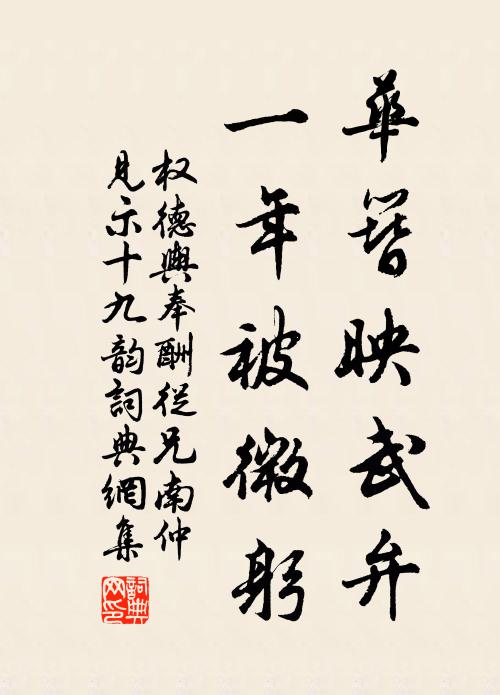 華簪映武弁
一年被微躬
权德輿奉酬從兄南仲
見示十九韵詞典網集
詞典網印